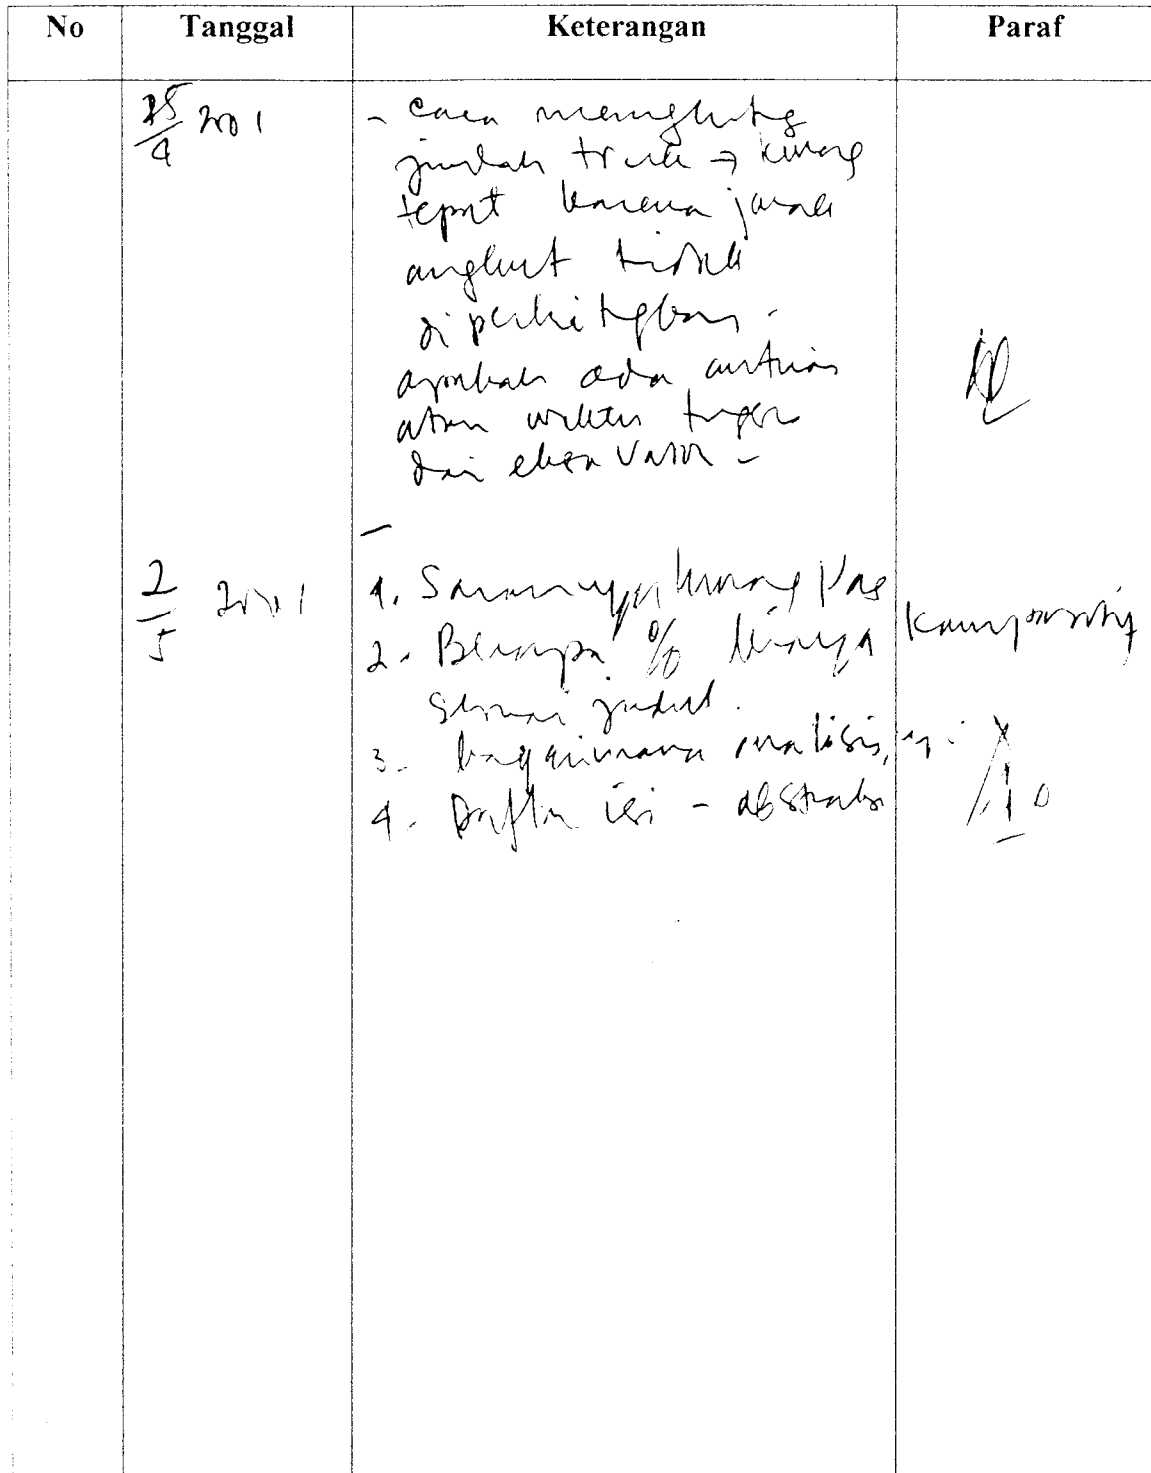 No Tanggal Keterangan Paraf
25/4 2001 - cara menghitung
jumlah truk → kurang
tepat karena jarak
angkut tidak
diperhitungkan -
apakah ada antrian
atau waktu tunggu
dari eksavator -
-
2/5 2001 1. Sarannya kurang pas
2. Berapa % kinerja
sesuai judul.
3. bagaimana analisisnya
4. Daftar isi - abstraksi